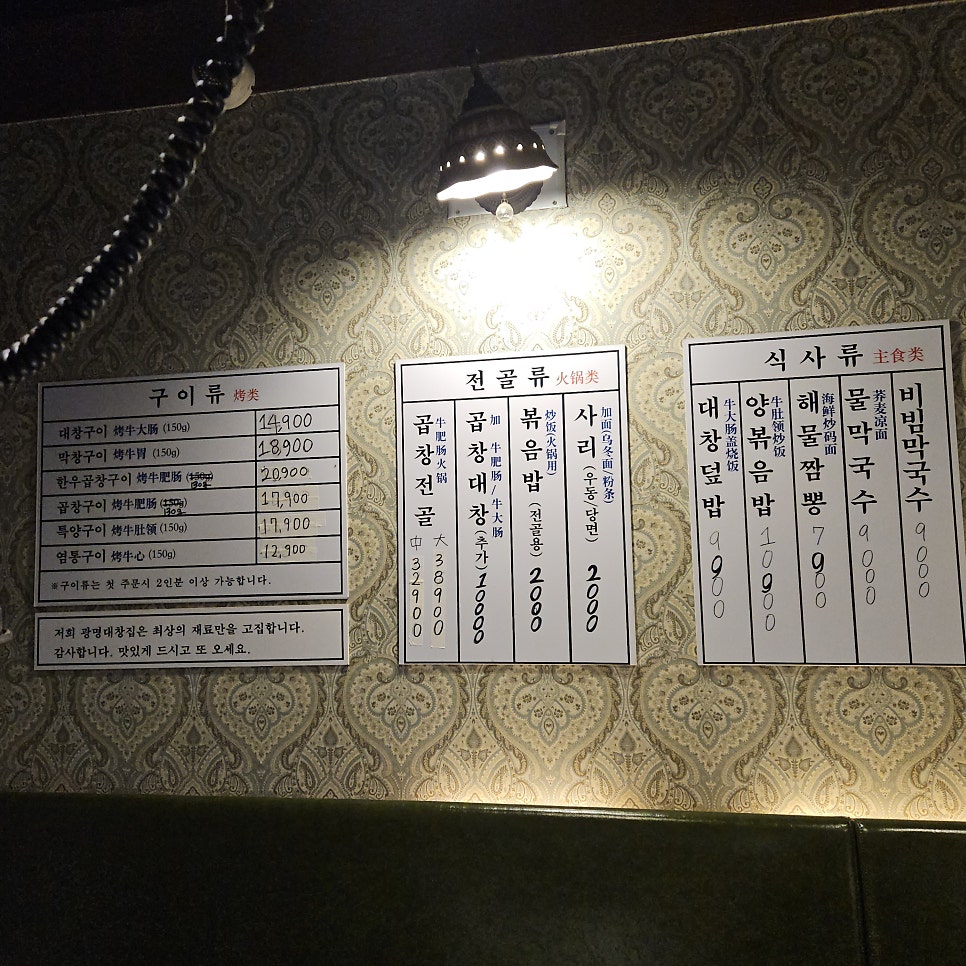 구이류 烤类
대창구이 烤牛大肠 (150g) 14,900
막창구이 烤牛胃 (150g) 18,900
한우곱창구이 烤牛肥肠 (150g) 130g 20,900
곱창구이 烤牛肥肠 (150g) 130g 17,900
특양구이 烤牛肚领 (150g) 17,900
염통구이 烤牛心 (150g) 12,900
※구이류는 첫 주문시 2인분 이상 가능합니다.
저희 광명대창집은 최상의 재료만을 고집합니다.
감사합니다. 맛있게 드시고 또 오세요.
전골류 火锅类
곱창전골 牛肥肠火锅 中 32900 大 38900
곱창대창(추가) 加 牛肥肠/牛大肠 10000
볶음밥(전골용) 炒饭(火锅用) 2000
사리(우동/당면) 加面(乌冬面/粉条) 2000
식사류 主食类
대창덮밥 牛大肠盖烧饭 9900
양볶음밥 牛肚领炒饭 10900
해물짬뽕 海鲜炒码面 7900
물막국수 荞麦凉面 9000
비빔막국수 9000